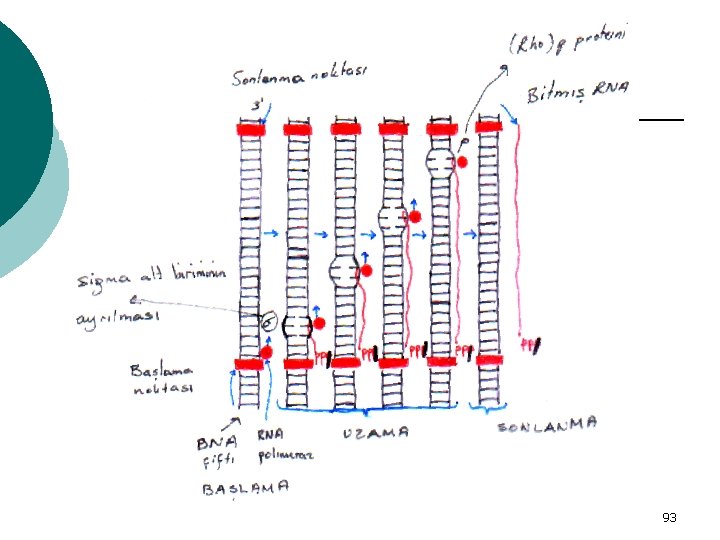 (Rho) ρ proteini
Sonlanma noktası
Bitmiş RNA
3'
ρ
sigma alt biriminin
ayrılması
σ
PPP
PPP
PPP
PPP
PPP
Başlama
noktası
BNA
çifti
RNA
polimeraz
UZAMA
SONLANMA
BAŞLAMA
93